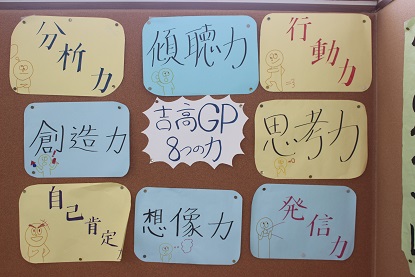 分析力
傾聴力
行動力
創造力
吉高GP
8つの力
思考力
自己肯定力
想像力
発信力